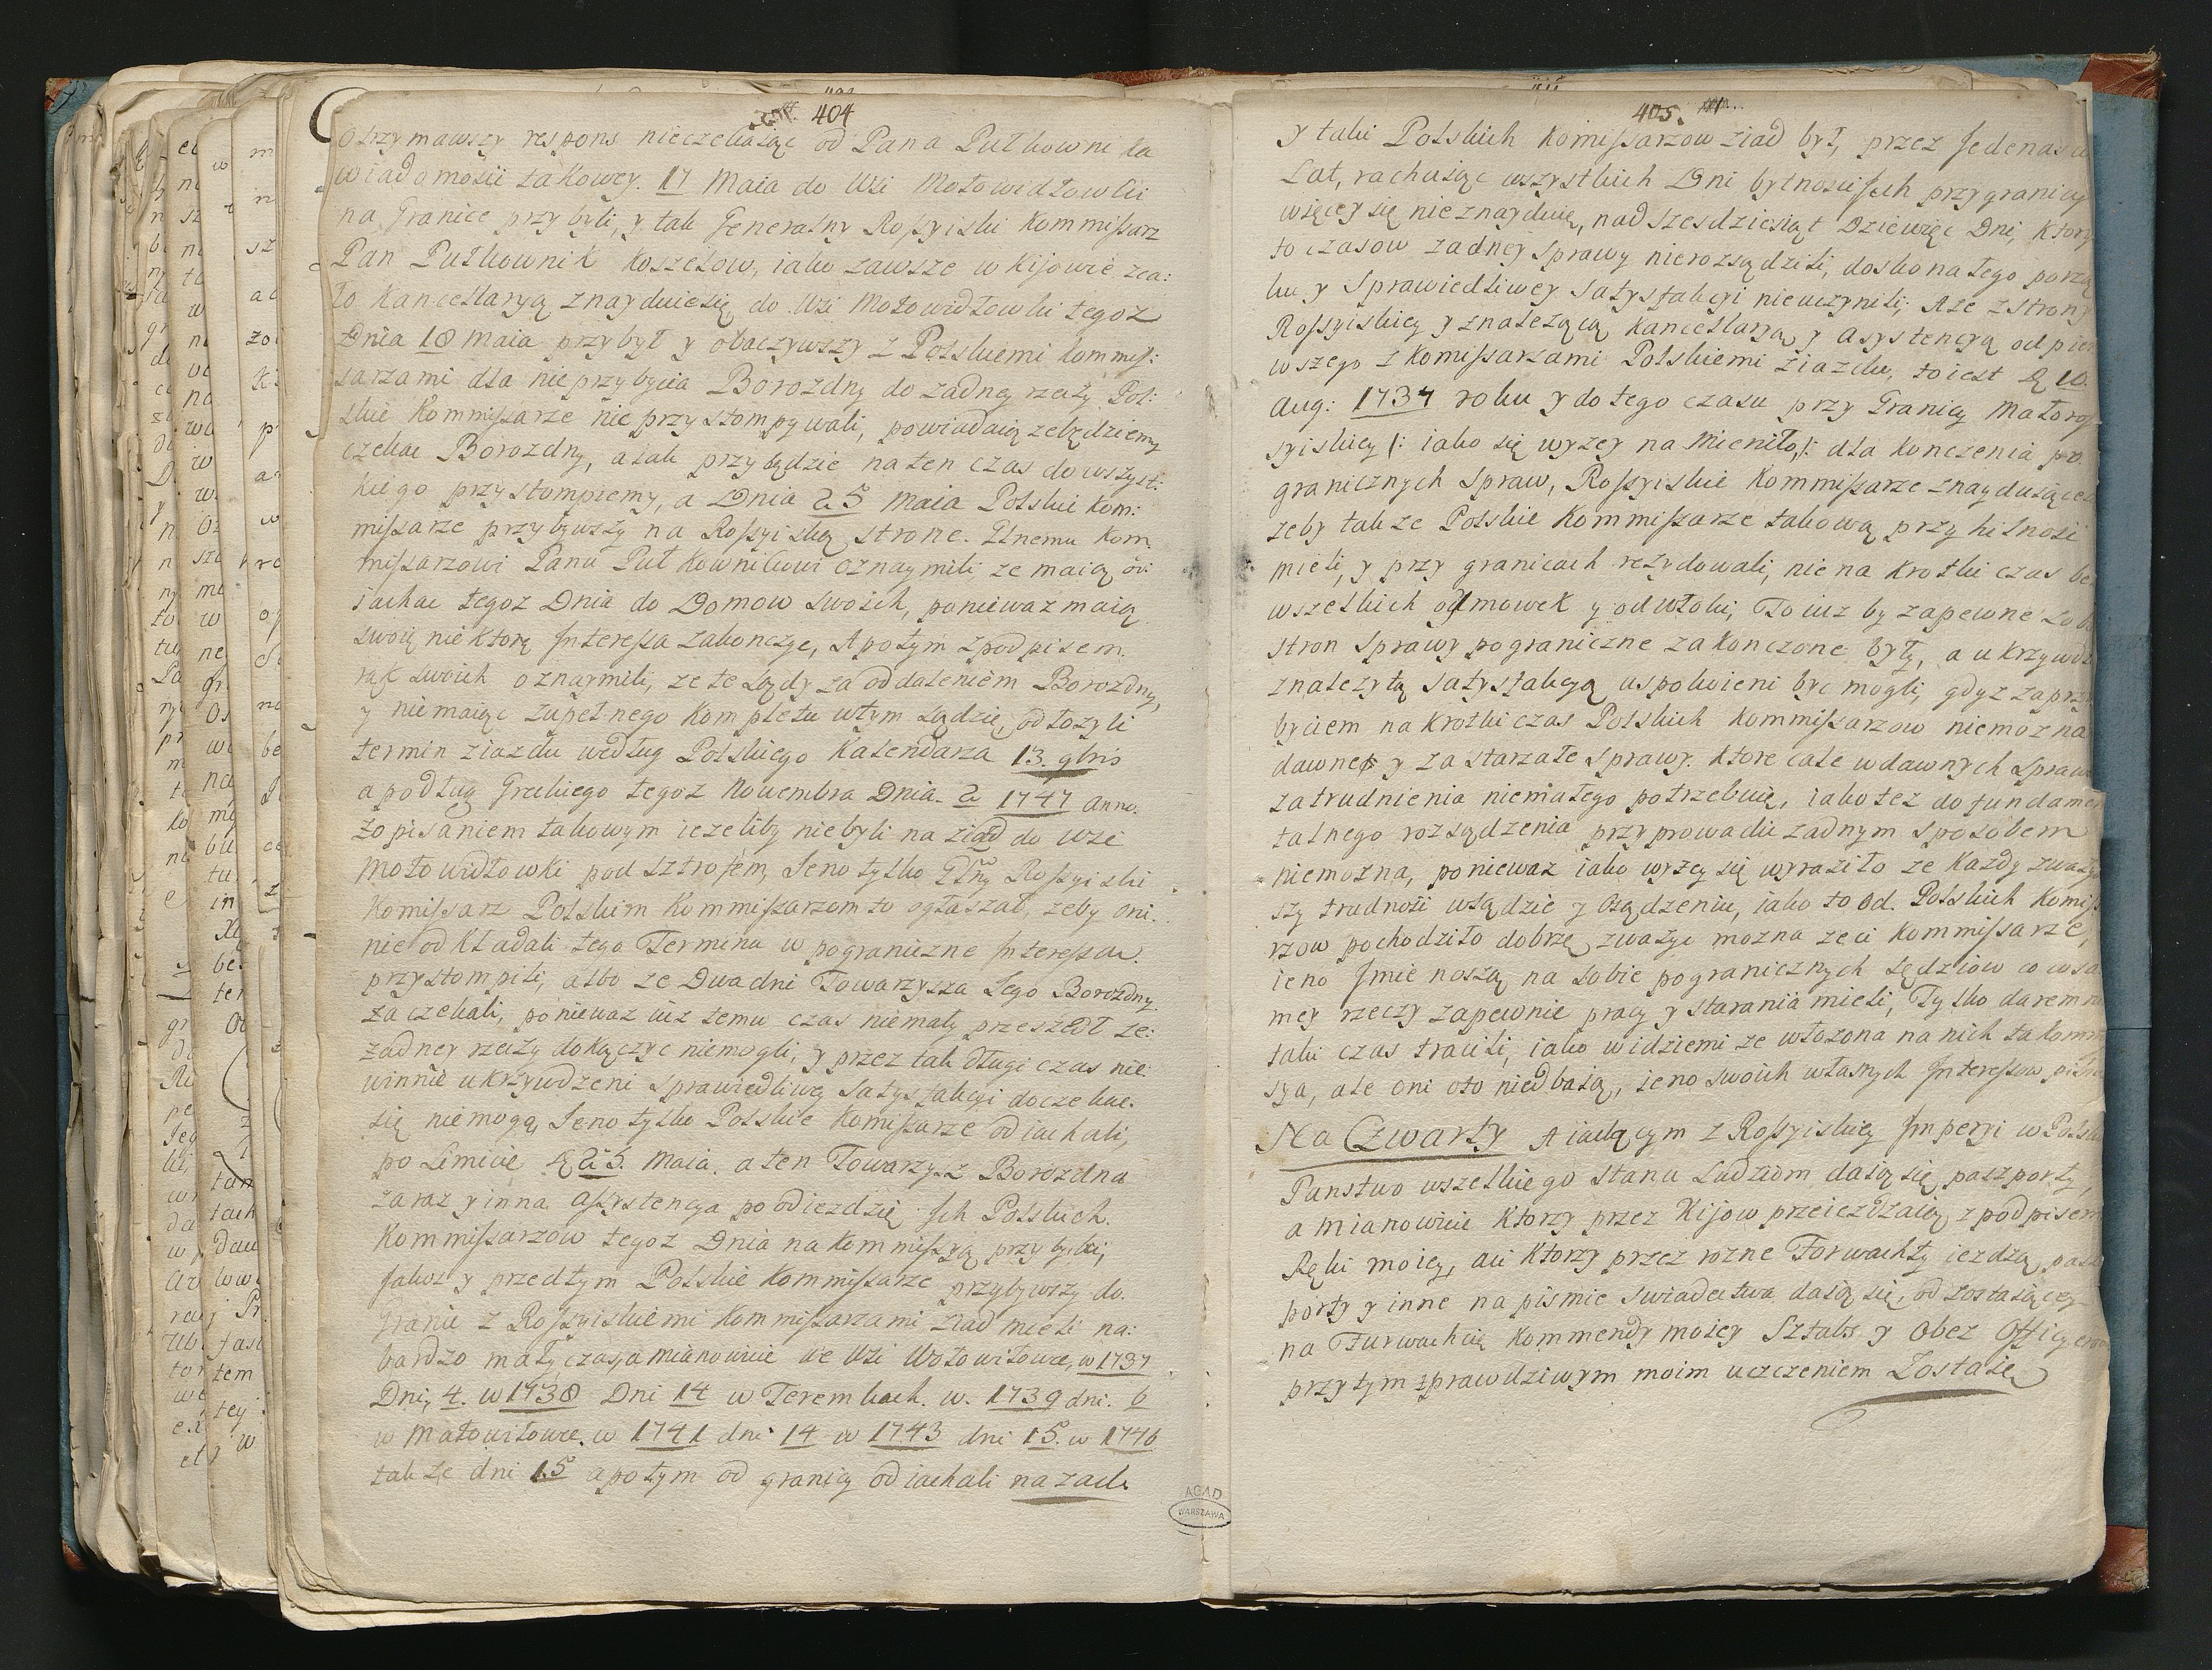 404
otrzymawszy respons nieczekaiąc od Pana Pułkownika
wiadomosci takowey. 17 Maia do Wsi Motowidłowki
na Granice przybyli, y tak Generalny Rossyiski Kommissarz
Pan Pułkownik Koszelow, iako zawsze w Kijowie zca:
ło Kancellaryą znayduie się do Wsi Motowidłowki tegoz
Dnia 18 Maia przybył y obaczywszy z Polskiemi kommis:
sarzami dla nieprzybycia Borozdny do zadney rzeczy Pol:
skie Kommissarze nie przystompywali, powiadaią ze będziemy
czekac Borozdny, a iak przybędzie na ten czas do wszyst:
kiego przystompiemy, a Dnia 25 Maia Polskie Kom:
missarze przybywszy na Rossyiską strone. Głnemu Kom
missarzowi Panu Pułkownikowi oznaymili ze maią od:
iachac tegoz Dnia do Domow swoich, poniewaz maią
swoię niektorę Interessa zakonczyc, A potym zpodpisem
rąk swoich oznaymili, ze te Sądy za oddaleniem Borozdny,
y niemaiąc zupełnego Kompletu wtym Sądzie, odłozyli
termin ziazdu według Polskiego Kalendarza 13. 9bris
a podług Greckiego tegoz Novembra Dnia. 2 1747 anno.
zopisaniem takowym iezeliby niebyli na ziazd do Wsi
Motowidłowki pod sztrofem, Jeno tylko Głny Rossyiski
Komissarz Polskim Kommissarzom to ogłaszał, zeby oni.
nie odkładali tego Terminu w pograniczne Interessa.
przystompili, albo ze Dwa dni Towarzysza Jego Borozdny
zaczekali, poniewaz iuz temu czas niemały przeszedł ze:
zadney rzeczy dokączyc niemogli, y przez tak długi czas nie:
winnie ukrzywdzeni sprawiedliwę Satysfakcyi doczekac
się niemogą, Jeno tylko Polskie Komissarze odiachali,
po Limicie 25. Maia. a ten Towarzysz Borozdna
zaraz y inna assystencya po odiezdzię Ich Polskich.
Kommissarzow tegoz Dnia na Kommissyią przybyli,
Jakoz y przedtym Polskie Kommissarze przybywszy do.
Granic z Rossyiskiemi Kommissarzami ziad mieli na:
bardzo mały czas, a mianowicie we Wsi Wotowitowce, w 1737
Dni, 4. w 1738 Dni 14 w Terembach. w. 1739 dni. 6
w Matowitowce. w 1741 dni 14 w 1743 dni 15. w 1746
takze dni 15 a potym od granicy odiachali nazad.
AGAD
WARSZAWA
405.
y taki Polskich Komissarzow ziad był, przez Jedenas
Lat, rachuiąc wszystkich Dni bytnosci Ich przy granicy
więcey się nieznayduię, nad szesdziesiąt Dziewięc Dni, Ktory
to czasow zadney sprawy nierozsądzili, doskonałego porzą
ku y Sprawiedliwey satysfakcyi nieuczynili; Ale z Strony
Rossyiskiey y znalezącą Kancellaryą, y Asystencyą od pier
wszego z Komissarzami Polskiemi ziazdu, toiest 10.
Aug: 1737 roku y do tego czasu przy Granicy Małoros
syiskiey /: iako się wyzey na mieniło,:/ dla konczenia po
granicznych Spraw, Rossyiskie Kommissarze znayduiące
zeby takze Polskie Kommissarze takową przyhilnosc
mieli, y przy granicach rezydowali, nie na krotki czas be
wszelkich odmowek y odwłoki, To iuz by zapewne z ob
stron Sprawy pograniczne zakonczone były, a ukrzywdz
znalezytą satysfakcyą uspokoieni byc mogli, gdyz zaprzy
byciem na krotki czas Polskich Kommissarzow niemozna
dawne y zastarzałe sprawy. ktore całe wdawnych Spraw
zatrudnienia niemałego potrzebuią, iako tez do fundamen
talnego rozsądzenia przyprowadic zadnym sposobem
niemozna, poniewaz iako wyzey się wyraziło ze kazdy zwazy
szy trudnosci wsądzie y Osądzeniu, iako to od. Polskich Komis
rzow pochodziło dobrzę zwazyc mozna ze ci Kommissarze,
ieno Imie noszą na sobie pogranicznych Sędziow co wsa
mey rzeczy zapewnie pracy y starania mieli, Tylko daremn
taki czas tracili, iako widziemi ze włozona na nich ta komm
sya, ale oni oto niedbaią, ieno swoich własnych Interessow
Na Czwarty A iadącym z Rossyiskiey Imperyi w Polsk
Panstwo wszelkiego stanu Ludziom daią się paszporty,
a mianowicie Ktorzy przez Kijow przeiezdzaią z podpisem
Ręki moiey, aci Ktorzy przez rozne Forwachty iezdzą, pasz
porty y inne na pismie swiadectwa daią się, od zostaiącey
na Furwachcię Kommendy moiey Sztabs y Ober Officyerow
przytym zprawdziwym moim uczczeniem Zostaię